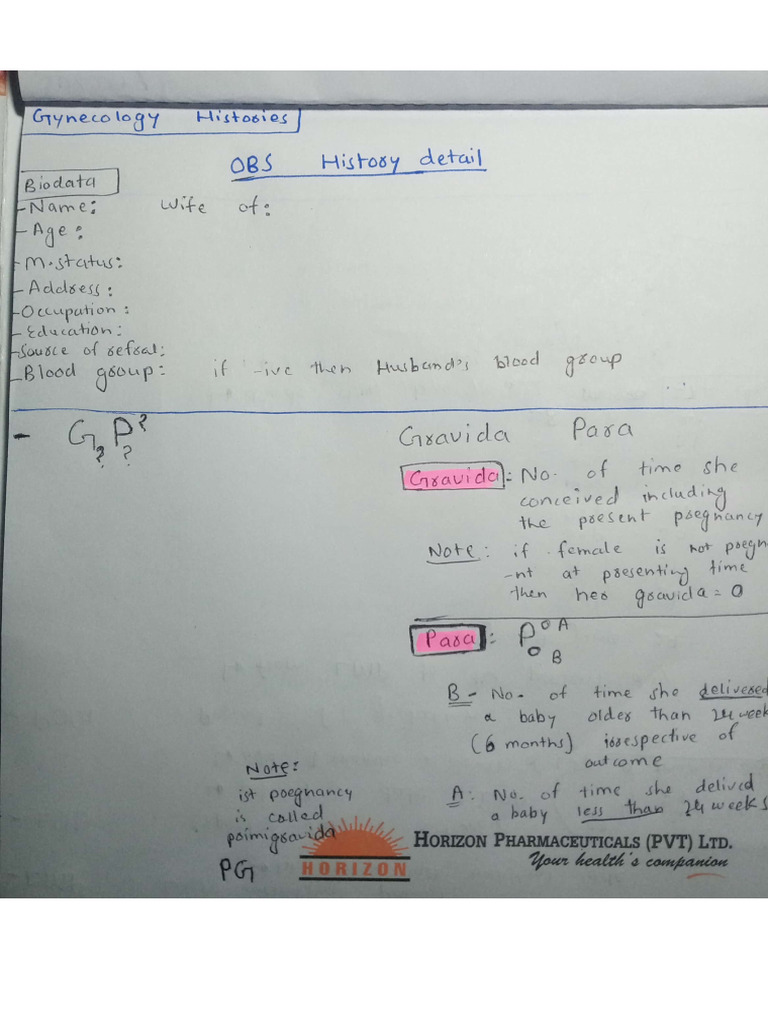 Gynecology Histories
OBS History detail
Biodata
- Name: Wife of:
- Age:
- M.status:
- Address:
- Occupation:
- Education:
- Source of refral:
- Blood group: if -ive then Husband's blood group
- G? P??
Gravida Para
Gravida: No. of time she
conceived including
the present pregnancy
Note: if female is not pregn
-nt at presenting time
then her gravida = 0
Para: P o A
o B
B - No. of time she delivered
a baby older than 24 week
(6 months) irrespective of
outcome
A: No. of time she delived
a baby less than 24 weeks
Note:
ist pregnancy
is called
primigravida
PG
HORIZON
HORIZON PHARMACEUTICALS (PVT) LTD.
Your health's companion